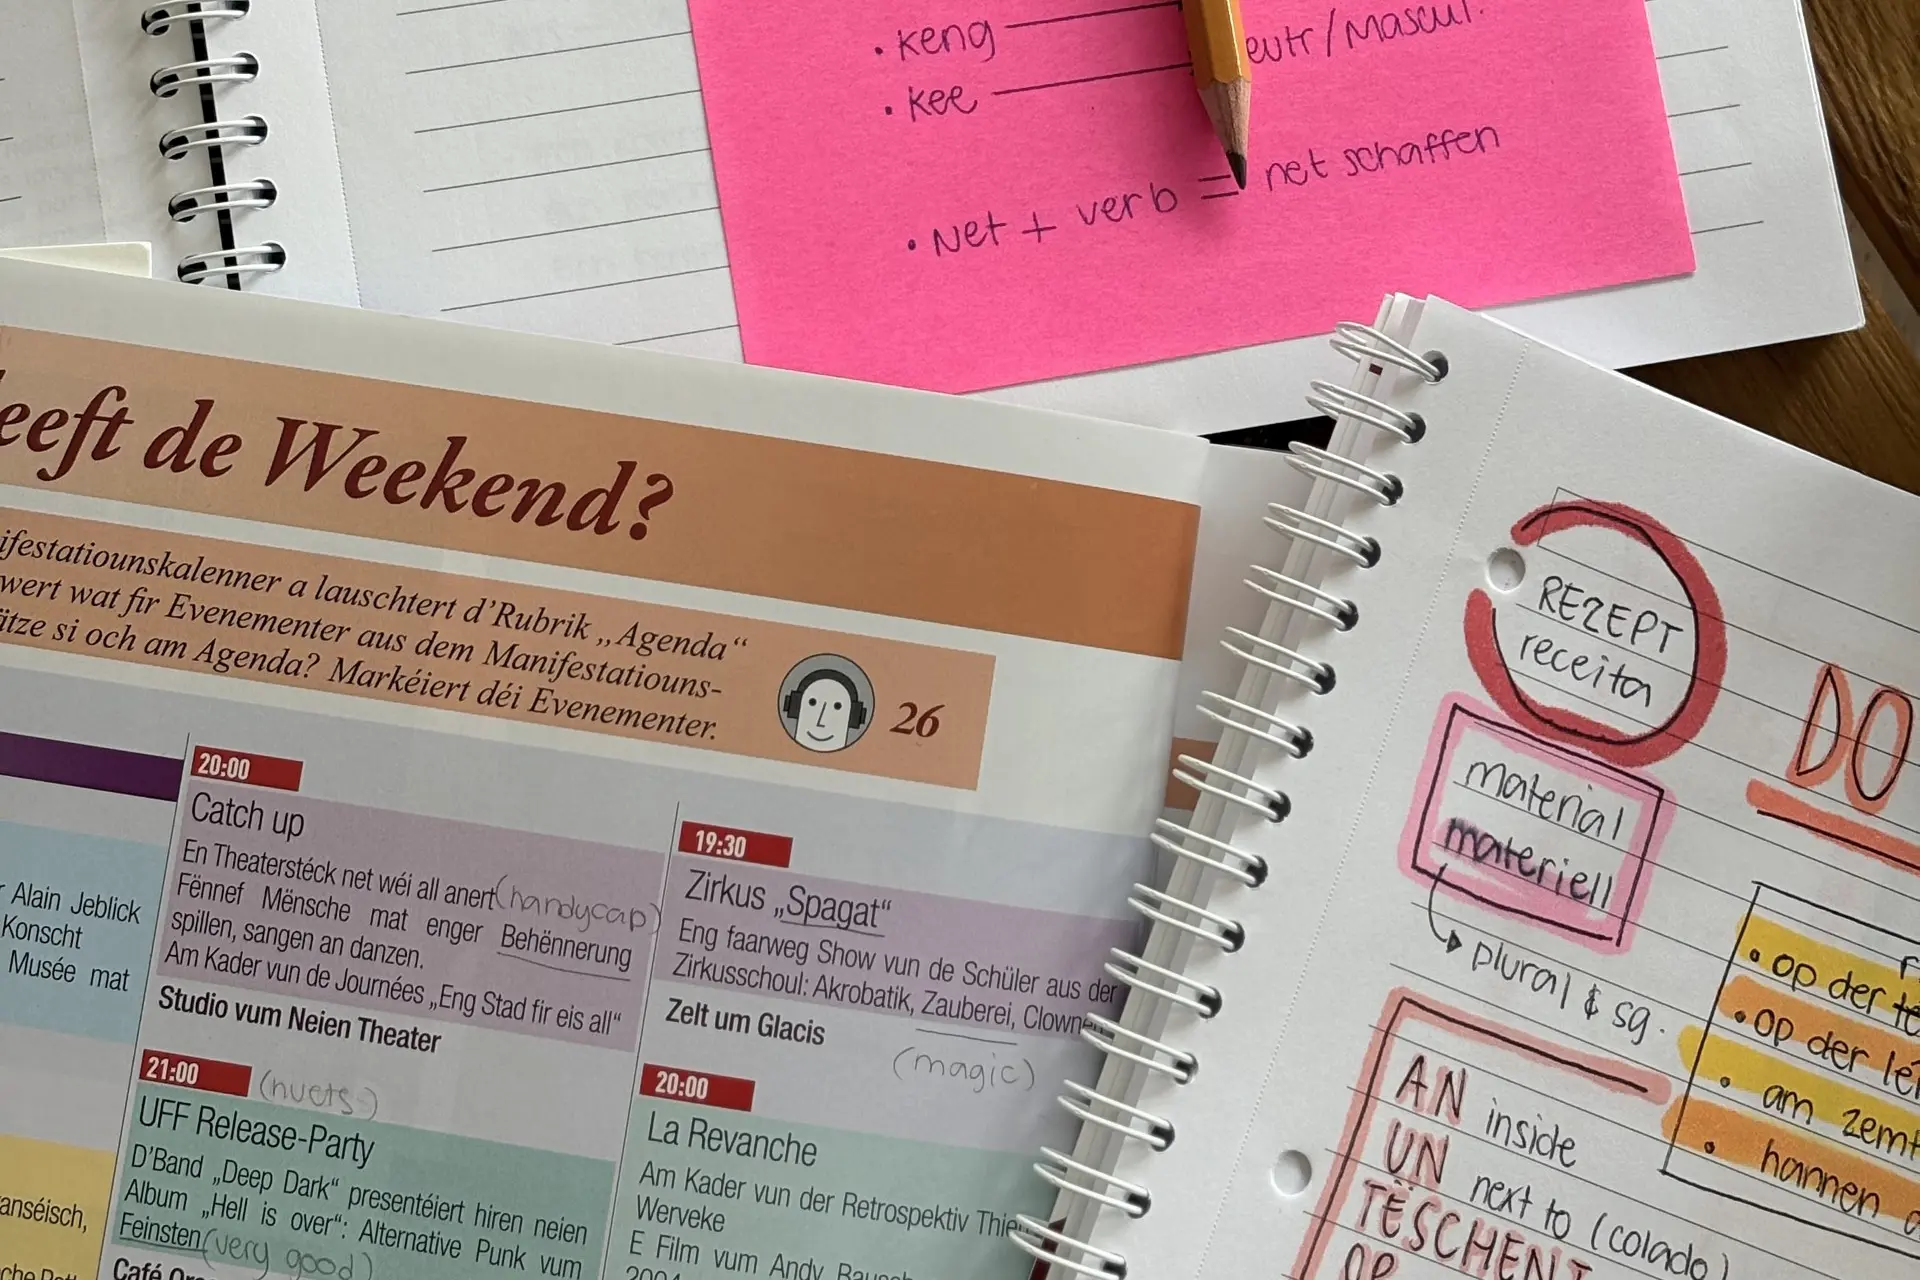 • keng
• kee
eutr/Mascul.
• Net + verb = net schaffen
eeft de Weekend?
ifestatiounskalenner a lauschtert d'Rubrik „Agenda“
wert wat fir Evenementer aus dem Manifestatiouns-
ätze si och am Agenda? Markéiert déi Evenementer.
26
Alain Jeblick
Konscht
Musée mat
anséisch,
20:00
Catch up
En Theaterstéck net wéi all anert (handycap)
Fënnef Mënsche mat enger Behënnerung
spillen, sangen an danzen.
Am Kader vun de Journées „Eng Stad fir eis all“
Studio vum Neien Theater
21:00 (nuets)
UFF Release-Party
D'Band „Deep Dark“ presentéiert hiren neien
Album „Hell is over“: Alternative Punk vum
Feinsten (very good)
Café
19:30
Zirkus „Spagat“
Eng faarweg Show vun de Schüler aus der
Zirkusschoul: Akrobatik, Zauberei, Clowne
Zelt um Glacis
(magic)
20:00
La Revanche
Am Kader vun der Retrospektiv Thie
Werveke
E Film vum Andy
REZEPT
receita
DO
material
materiell
plural & sg.
• op der
• op der
• am
• hannen
AN inside
UN next to (colado)
TËSCHENT
OP